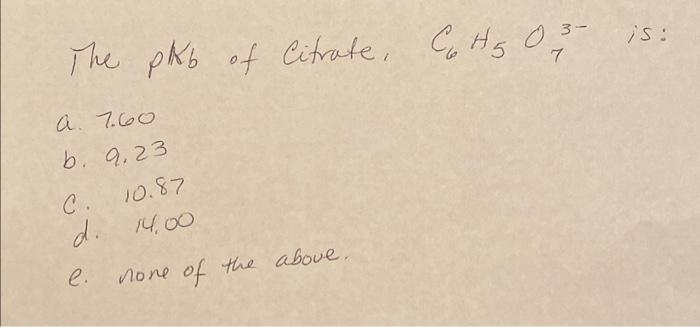 The pKb of Citrate, C₆H₅O₇³⁻ is:
a. 7.60
b. 9.23
c. 10.87
d. 14.00
e. none of the above.